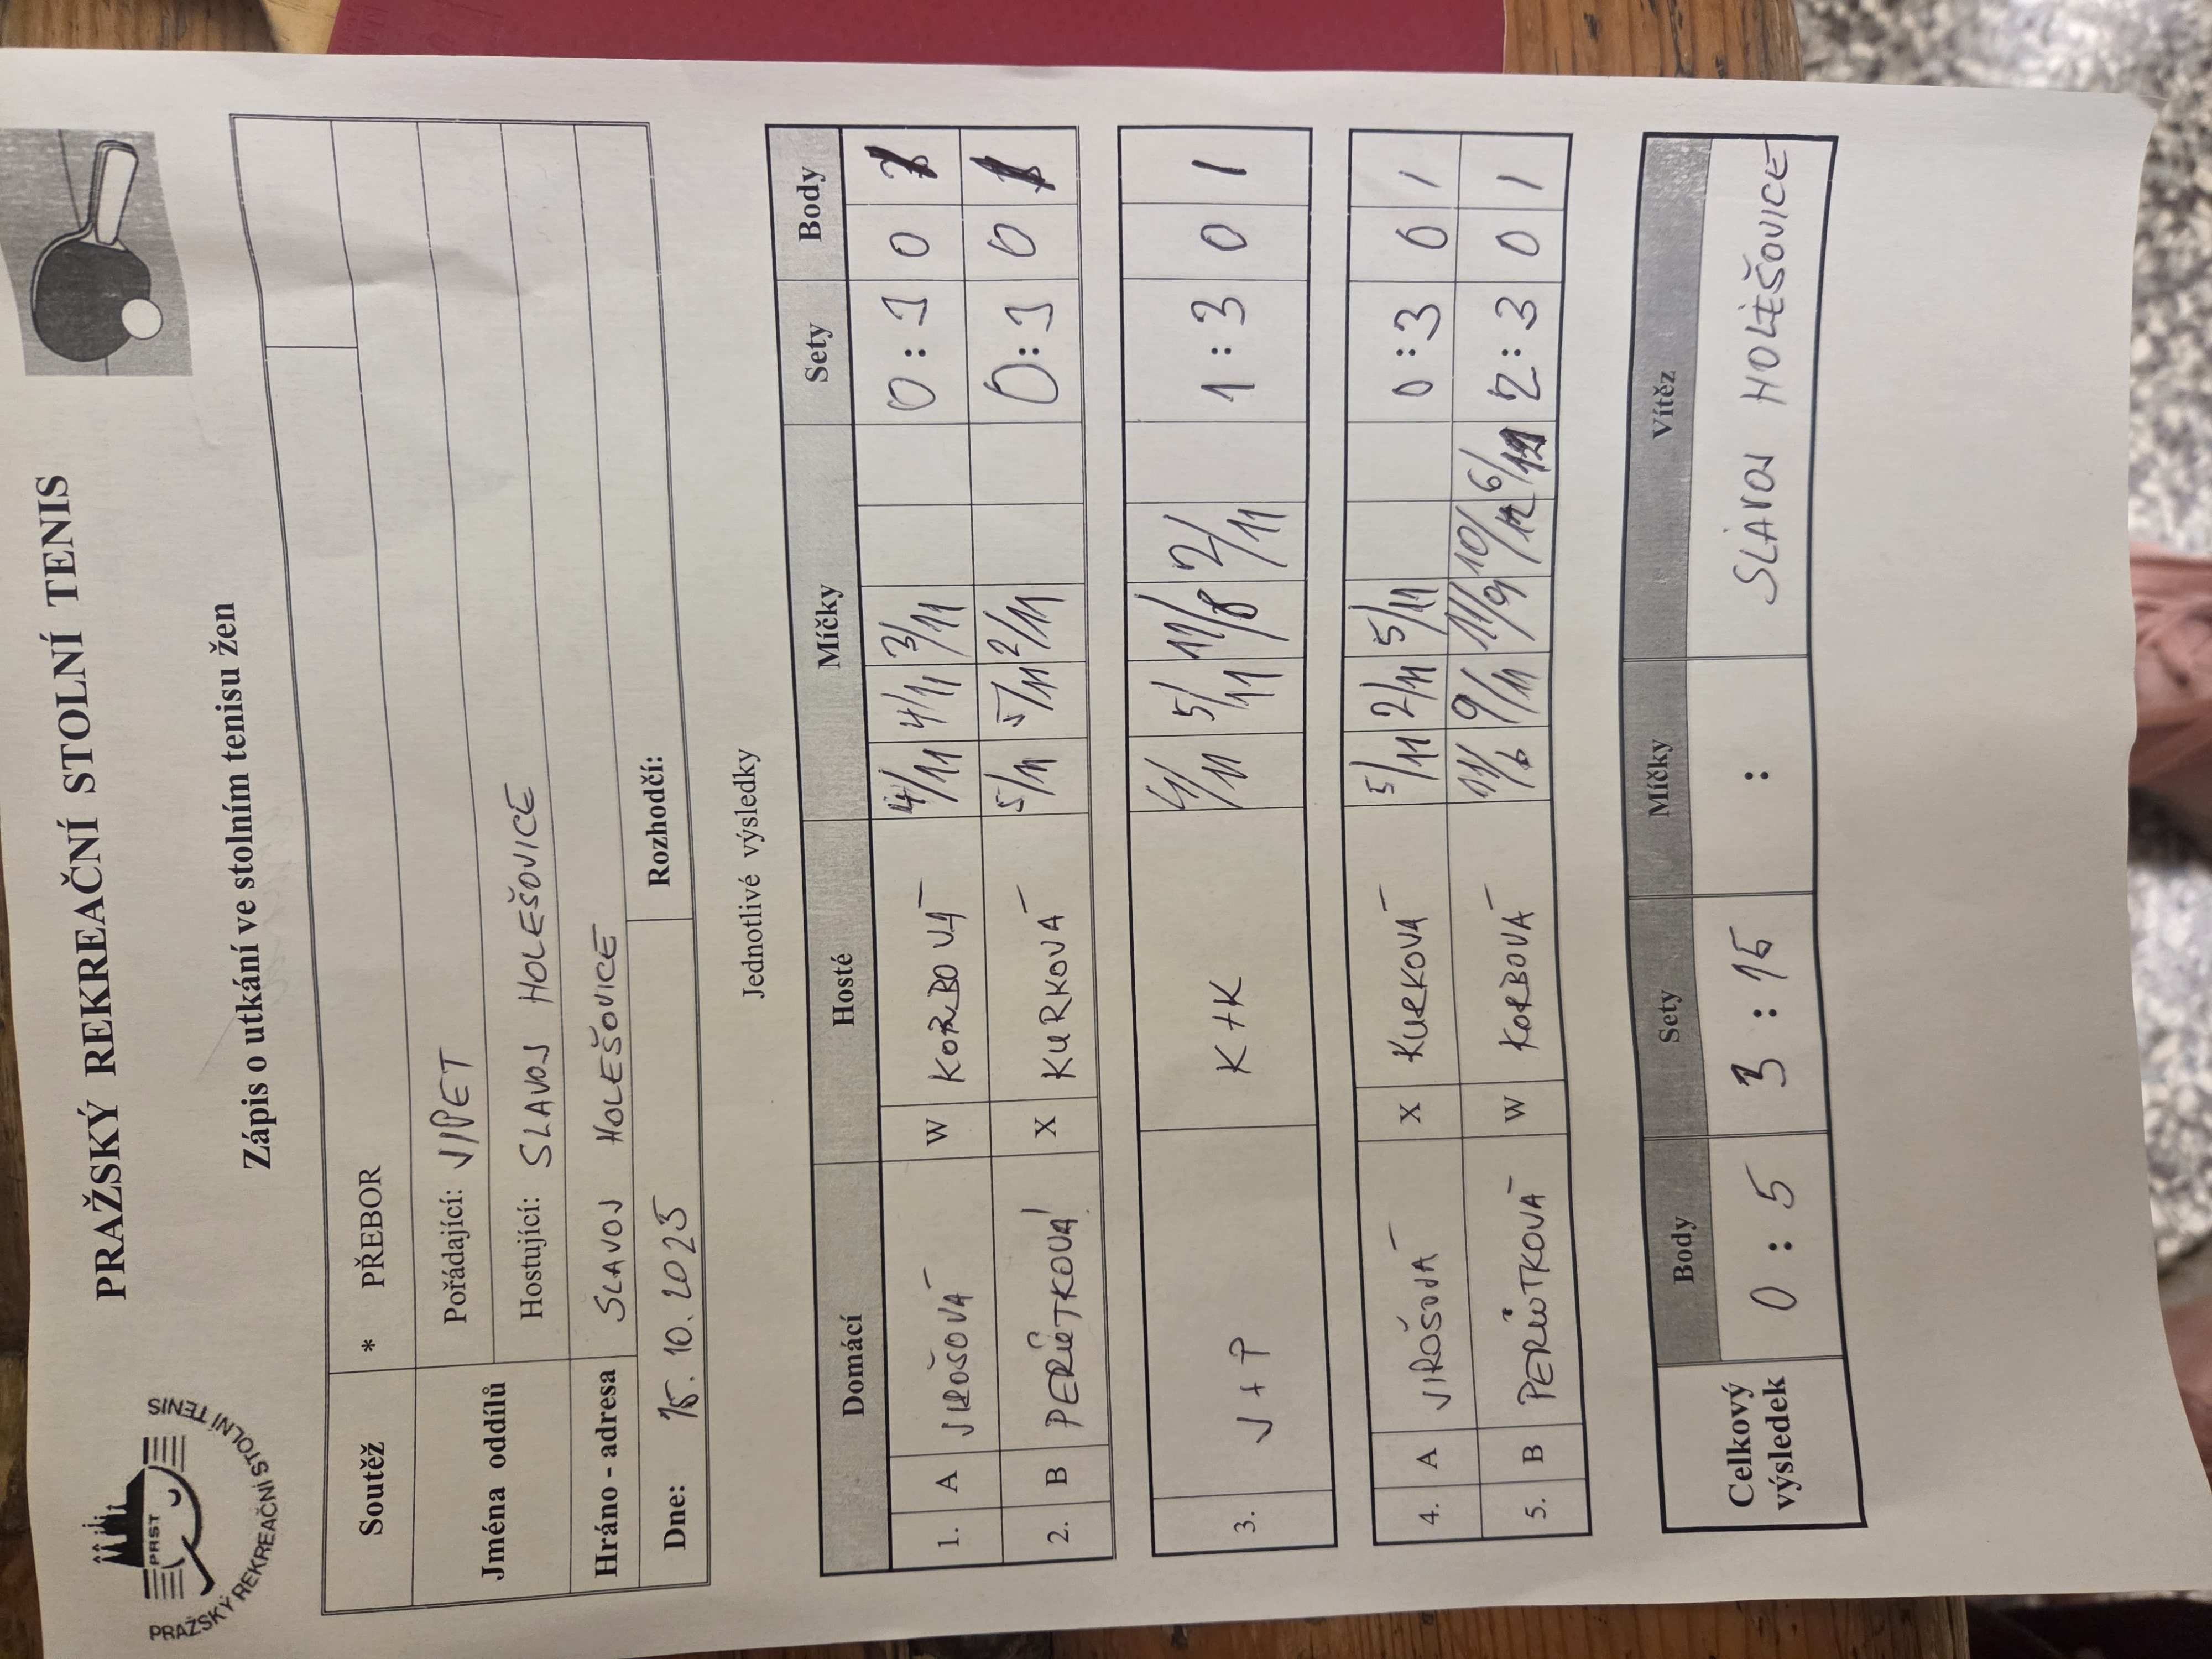 PRAŽSKÝ REKREAČNÍ STOLNÍ TENIS
PRST
PRAŽSKÝ REKREAČNÍ STOLNÍ TENIS
Zápis o utkání ve stolním tenisu žen
Soutěž * PŘEBOR
Jména oddílů Pořádající: VIPET
Hostující: SLAVOJ HOLEŠOVICE
Hráno - adresa SLAVOJ HOLEŠOVICE
Dne: 15. 10. 2025 Rozhodčí:
Jednotlivé výsledky
Domácí Hosté Míčky Sety Body
1. A JIROŠOVÁ W KORBOVÁ 4/11 4/11 3/11 0 : 3 0 1
2. B PERŮTKOVÁ X KURKOVÁ 5/11 5/11 2/11 0 : 3 0 1
3. J + P K + K 4/11 5/11 11/8 2/11 1 : 3 0 1
4. A JIROŠOVÁ X KURKOVÁ 5/11 2/11 5/11 0 : 3 0 1
5. B PERŮTKOVÁ W KORBOVÁ 11/6 9/11 11/9 10/12 6/11 2 : 3 0 1
Celkový výsledek Body Sety Míčky Vítěz
0 : 5 3 : 15 : SLAVOJ HOLEŠOVICE